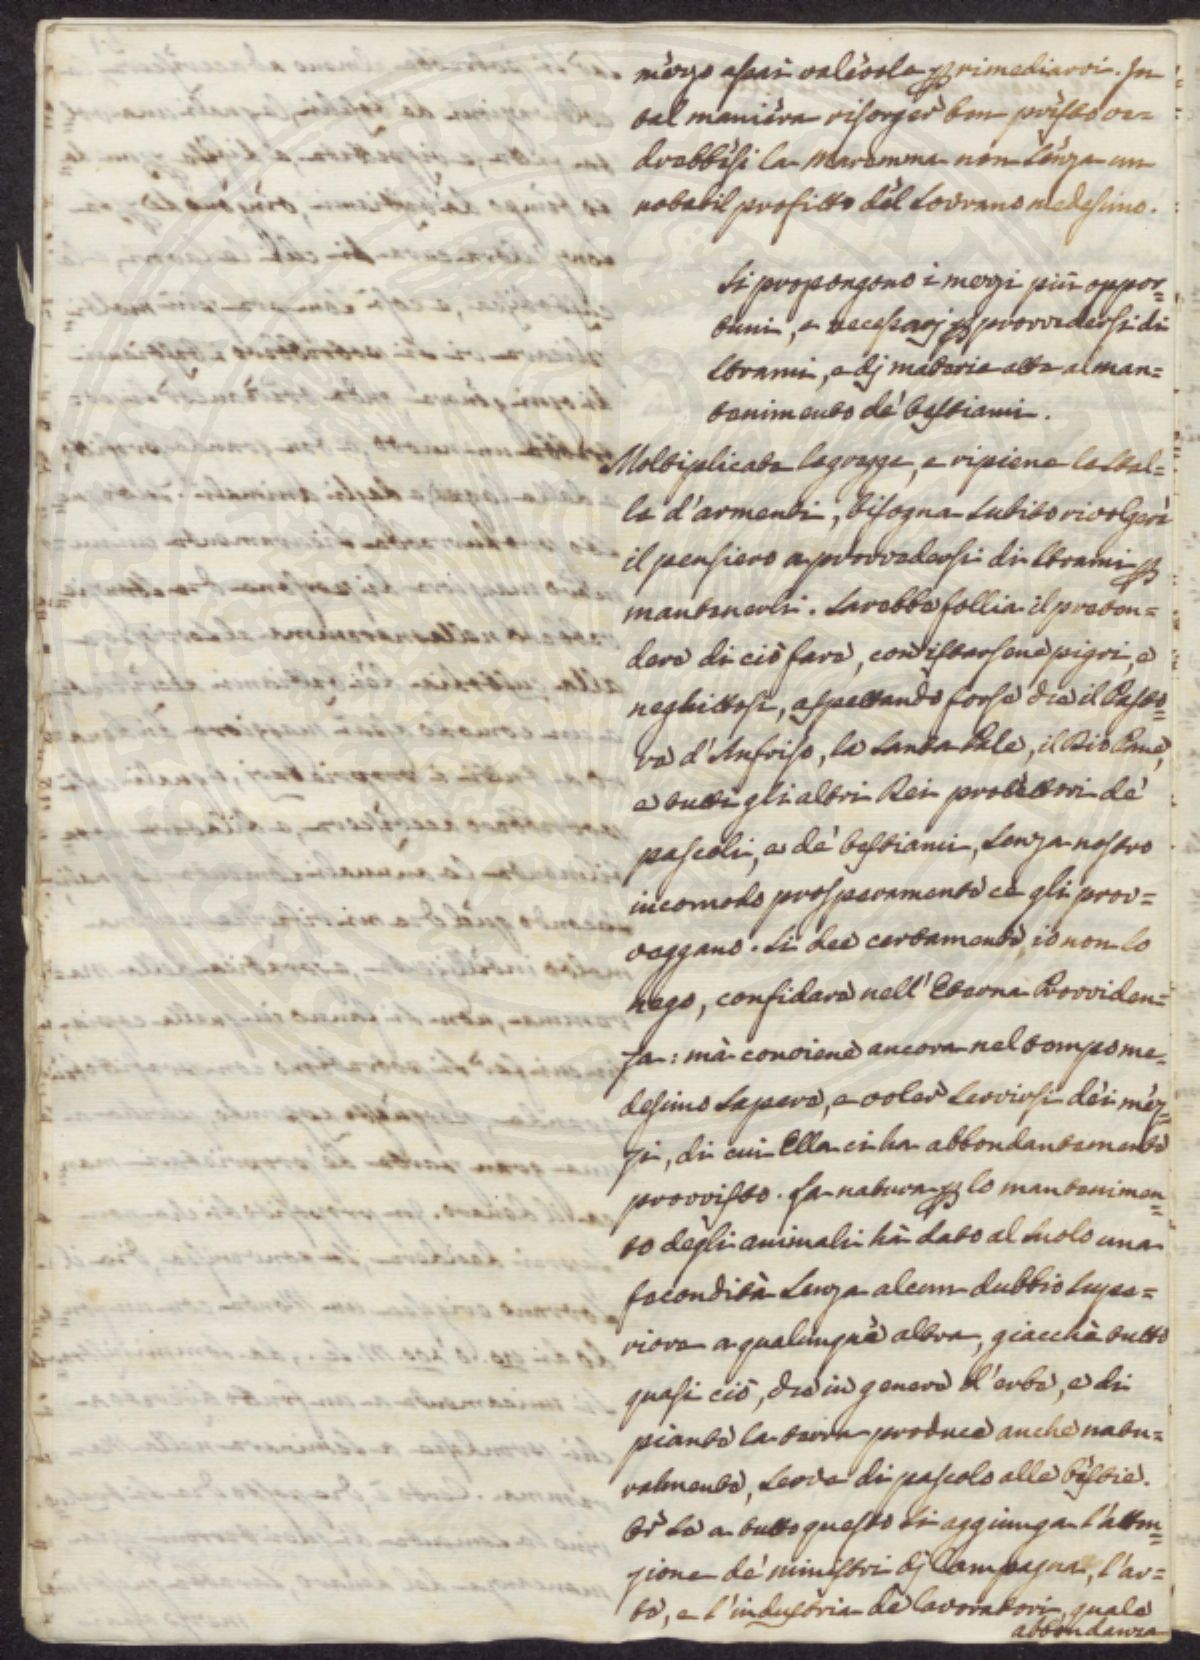 mezzo assai valevole p rimediarvi. In
tal maniera risorger ben presto ve=
drebbesi la Maremma non senza un
notabil profitto del Sovrano medesimo.
Si propongono i mezzi più oppor=
tuni, e necessarj p provvedersi di
strami, e dj materie atte al man=
tenimento de' bestiami.
Moltiplicate le gregge, e ripiene le stal=
le d'armenti, bisogna subito rivolgere
il pensiero a provvedersi di strami p
mantenerli. Sarebbe follia il preten=
dere di ciò fare, con istarsene pigri, e
neghittosi, aspettando forse che il Pasto=
re d'Anfriso, la Santa Pale, il Dio Pane,
e tutti gli altri Dei protettori de'
pascoli, e de' bestiami, senza nostro
incomodo prosperamente ce gli prov=
veggano. Si dee certamente, io non lo
nego, confidare nell'Eterna Provviden=
za: mà conviene ancora nel tempo me=
desimo sapere, e voler servirsi dei mez=
zi, di cui Ella ci ha abbondantemente
provvisto. La natura p lo mantenimen=
to degli animali hà dato al suolo una
fecondità senza alcun dubbio supe=
riore a qualunque altra, giacchè tutto
quasi ciò, che in genere d'erbe, e di
piante la terra produce anche natu=
ralmente, serve di pascolo alle bestie.
Or se a tutto questo si aggiunga l'atten=
zione de' ministri dj Campagna, l'ar=
te, e l'industria de' lavoratori, quale
abbondanza